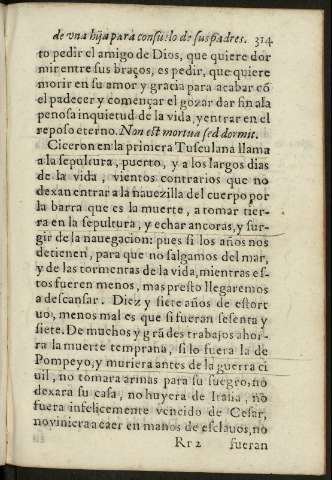 de vna hija para consuelo de sus padres. 314
to pedir el amigo de Dios, que quiere dor
mir entre sus braços, es pedir, que quiere
morir en su amor y gracia para acabar cō
el padecer y començar el gozar dar fin a la
penosa inquietud de la vida, y entrar en el
reposo eterno. Non est mortua sed dormit.
Ciceron en la primera Tusculana llama
a la sepultura, puerto, y a los largos dias
de la vida, vientos contrarios que no
dexan entrar a la nauezilla del cuerpo por
la barra que es la muerte, a tomar tier-
ra en la sepultura, y echar ancoras, y sur-
gir de la nauegacion: pues si los años nos
detienen, para que no salgamos del mar,
y de las tormentas de la vida, mientras es-
tos fueren menos, mas presto llegaremos
a descansar. Diez y siete años de estort
uo, menos mal es que si fueran sesenta y
siete. De muchos y grādes trabajos ahor-
ra la muerte temprana, si lo fuera la de
Pompeyo, y muriera antes de la guerra ci
uil, no tomara armas para su suegro, no
dexara su casa, no huyera de Italia, no
fuera infelicemente vencido de Cesar,
no viniera a caer en manos de esclauos, no
Rr 2 fueran